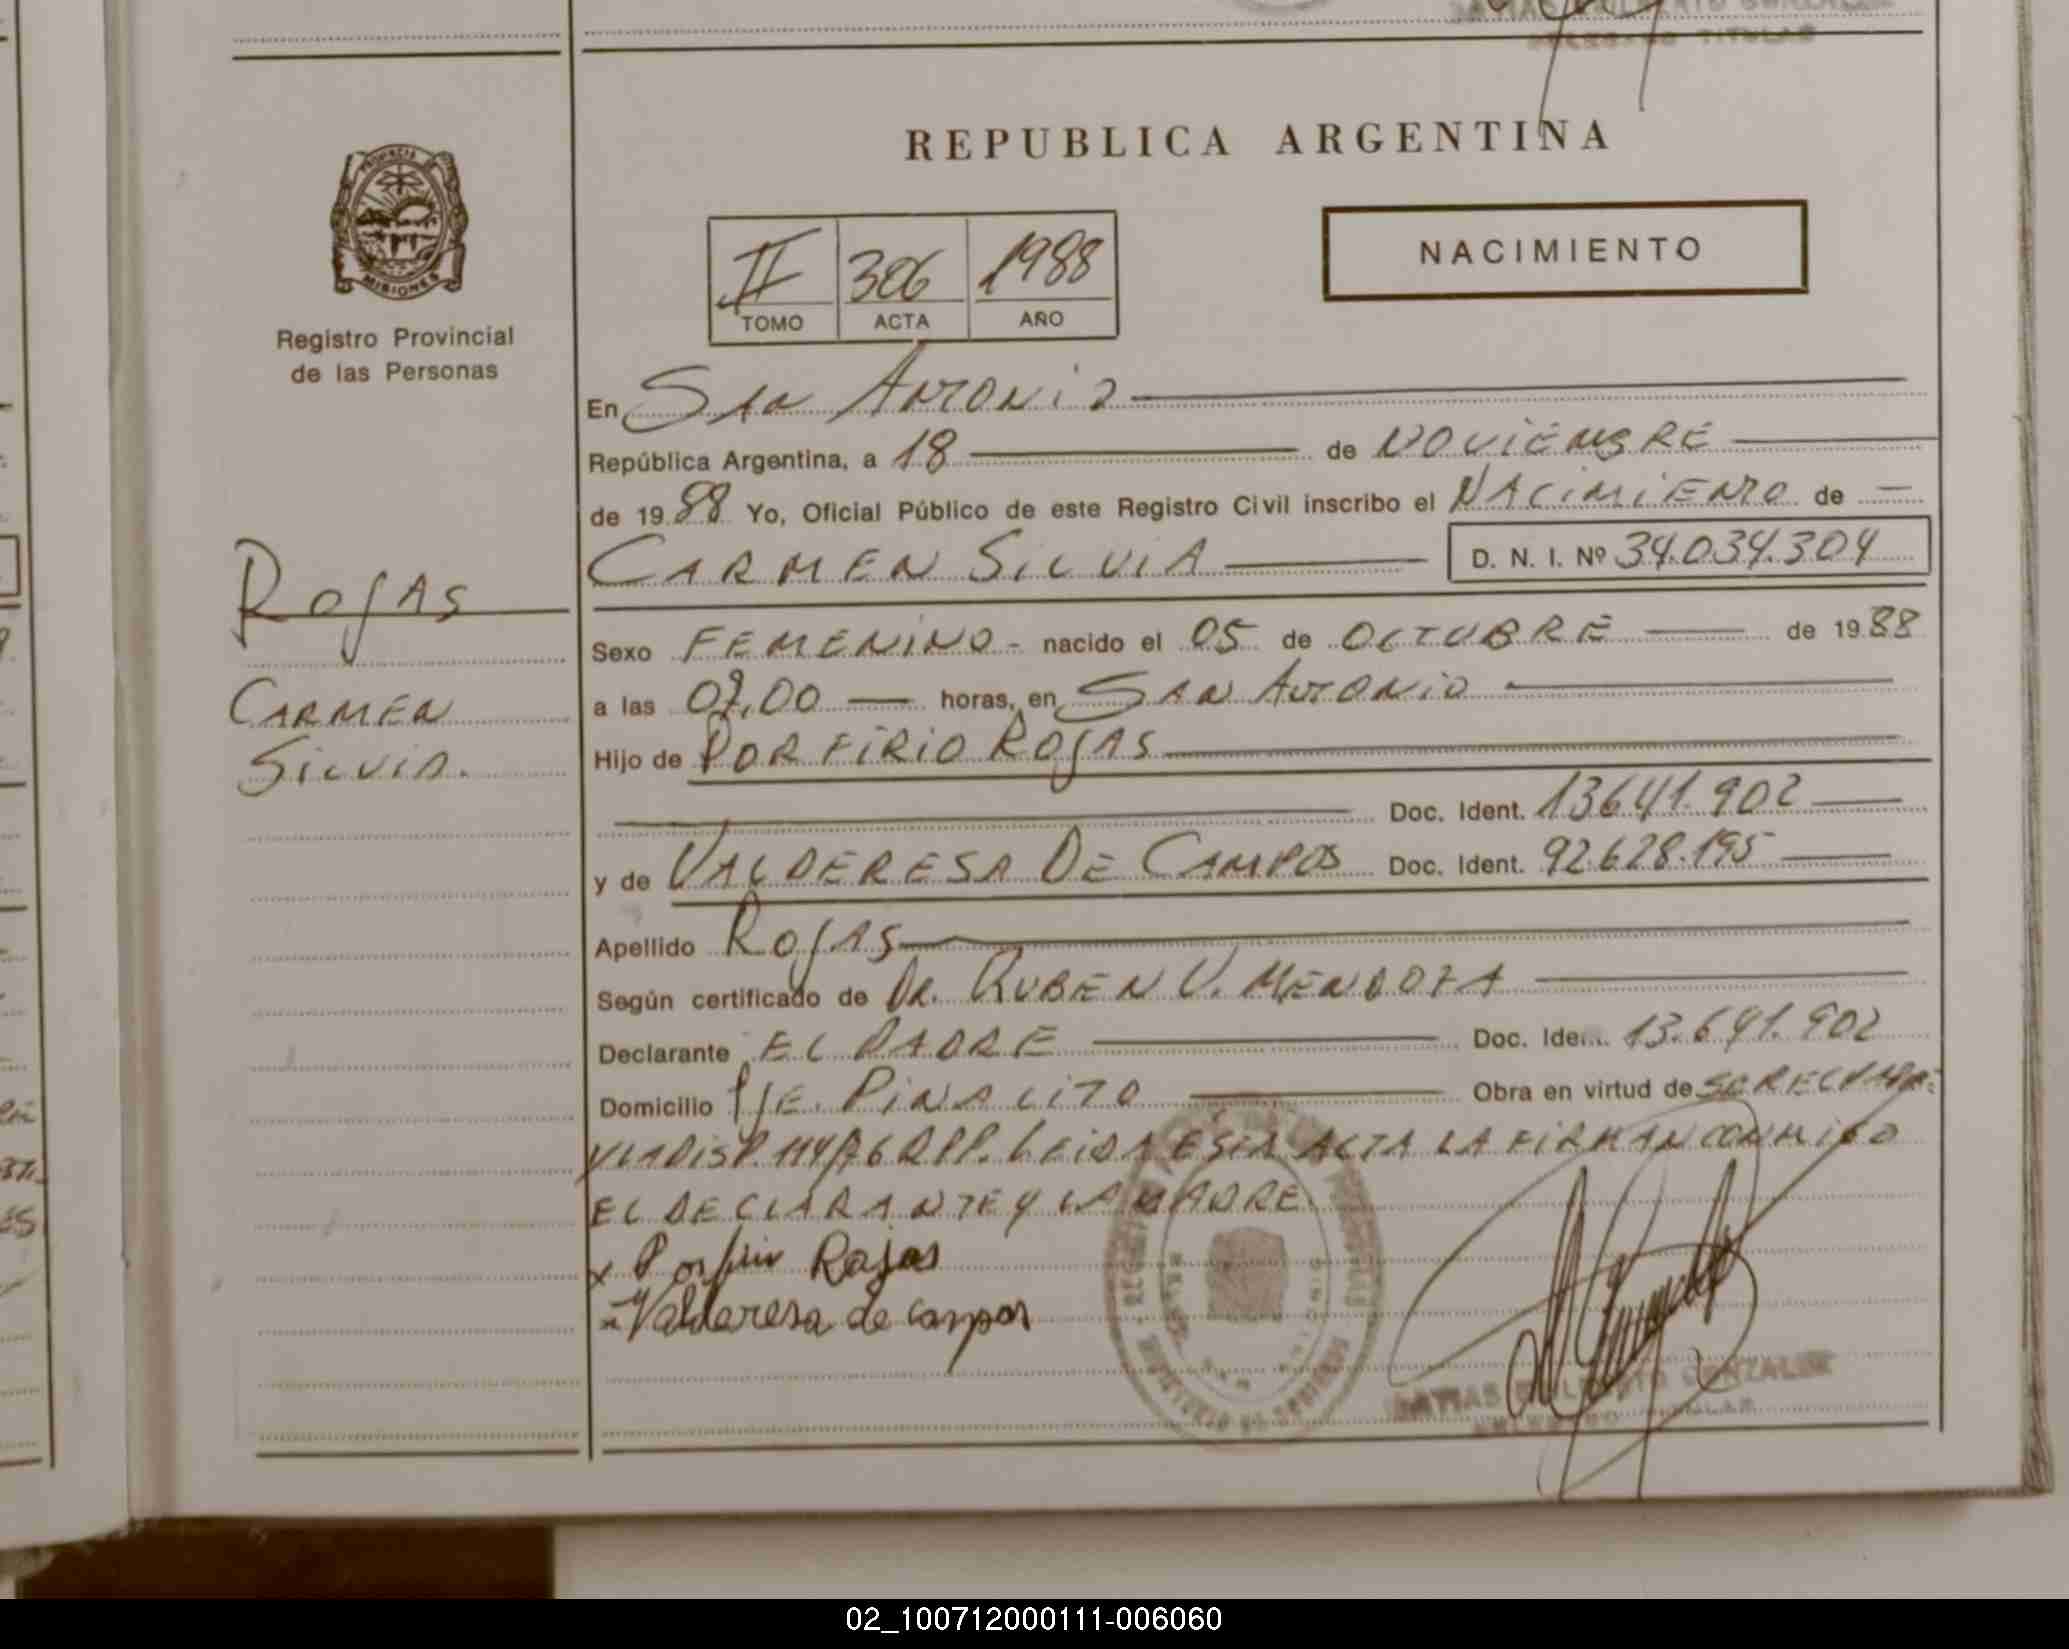 REPUBLICA ARGENTINA
PROVINCIA DE
MISIONES
Registro Provincial
de las Personas
II 306 1988
TOMO ACTA AÑO
NACIMIENTO
En San Antonio
República Argentina, a 18 de NOVIEMBRE
de 1988 Yo, Oficial Público de este Registro Civil inscribo el NACIMIENTO de
CARMEN SILVIA D. N. I. Nº 34.034.304
ROJAS
CARMEN
SILVIA.
Sexo FEMENINO - nacido el 05 de OCTUBRE de 1988
a las 07,00 horas, en SAN ANTONIO
Hijo de PORFIRIO ROJAS
Doc. Ident. 13641.902
y de VALDERESA DE CAMPOS Doc. Ident. 92.628.195
Apellido ROJAS
Según certificado de DR. RUBEN V. MENDOZA
Declarante EL PADRE Doc. Iden. 13.641.902
Domicilio PJE. PIÑALITO Obra en virtud de
114/76 RPP. LEIDA ESTA ACTA LA FIRMAN CONMIGO
EL DECLARANTE Y LA MADRE.
x Porfirio Rojas
Valderesa de campos
MATIAS GONZALEZ
TITULAR
02_100712000111-006060